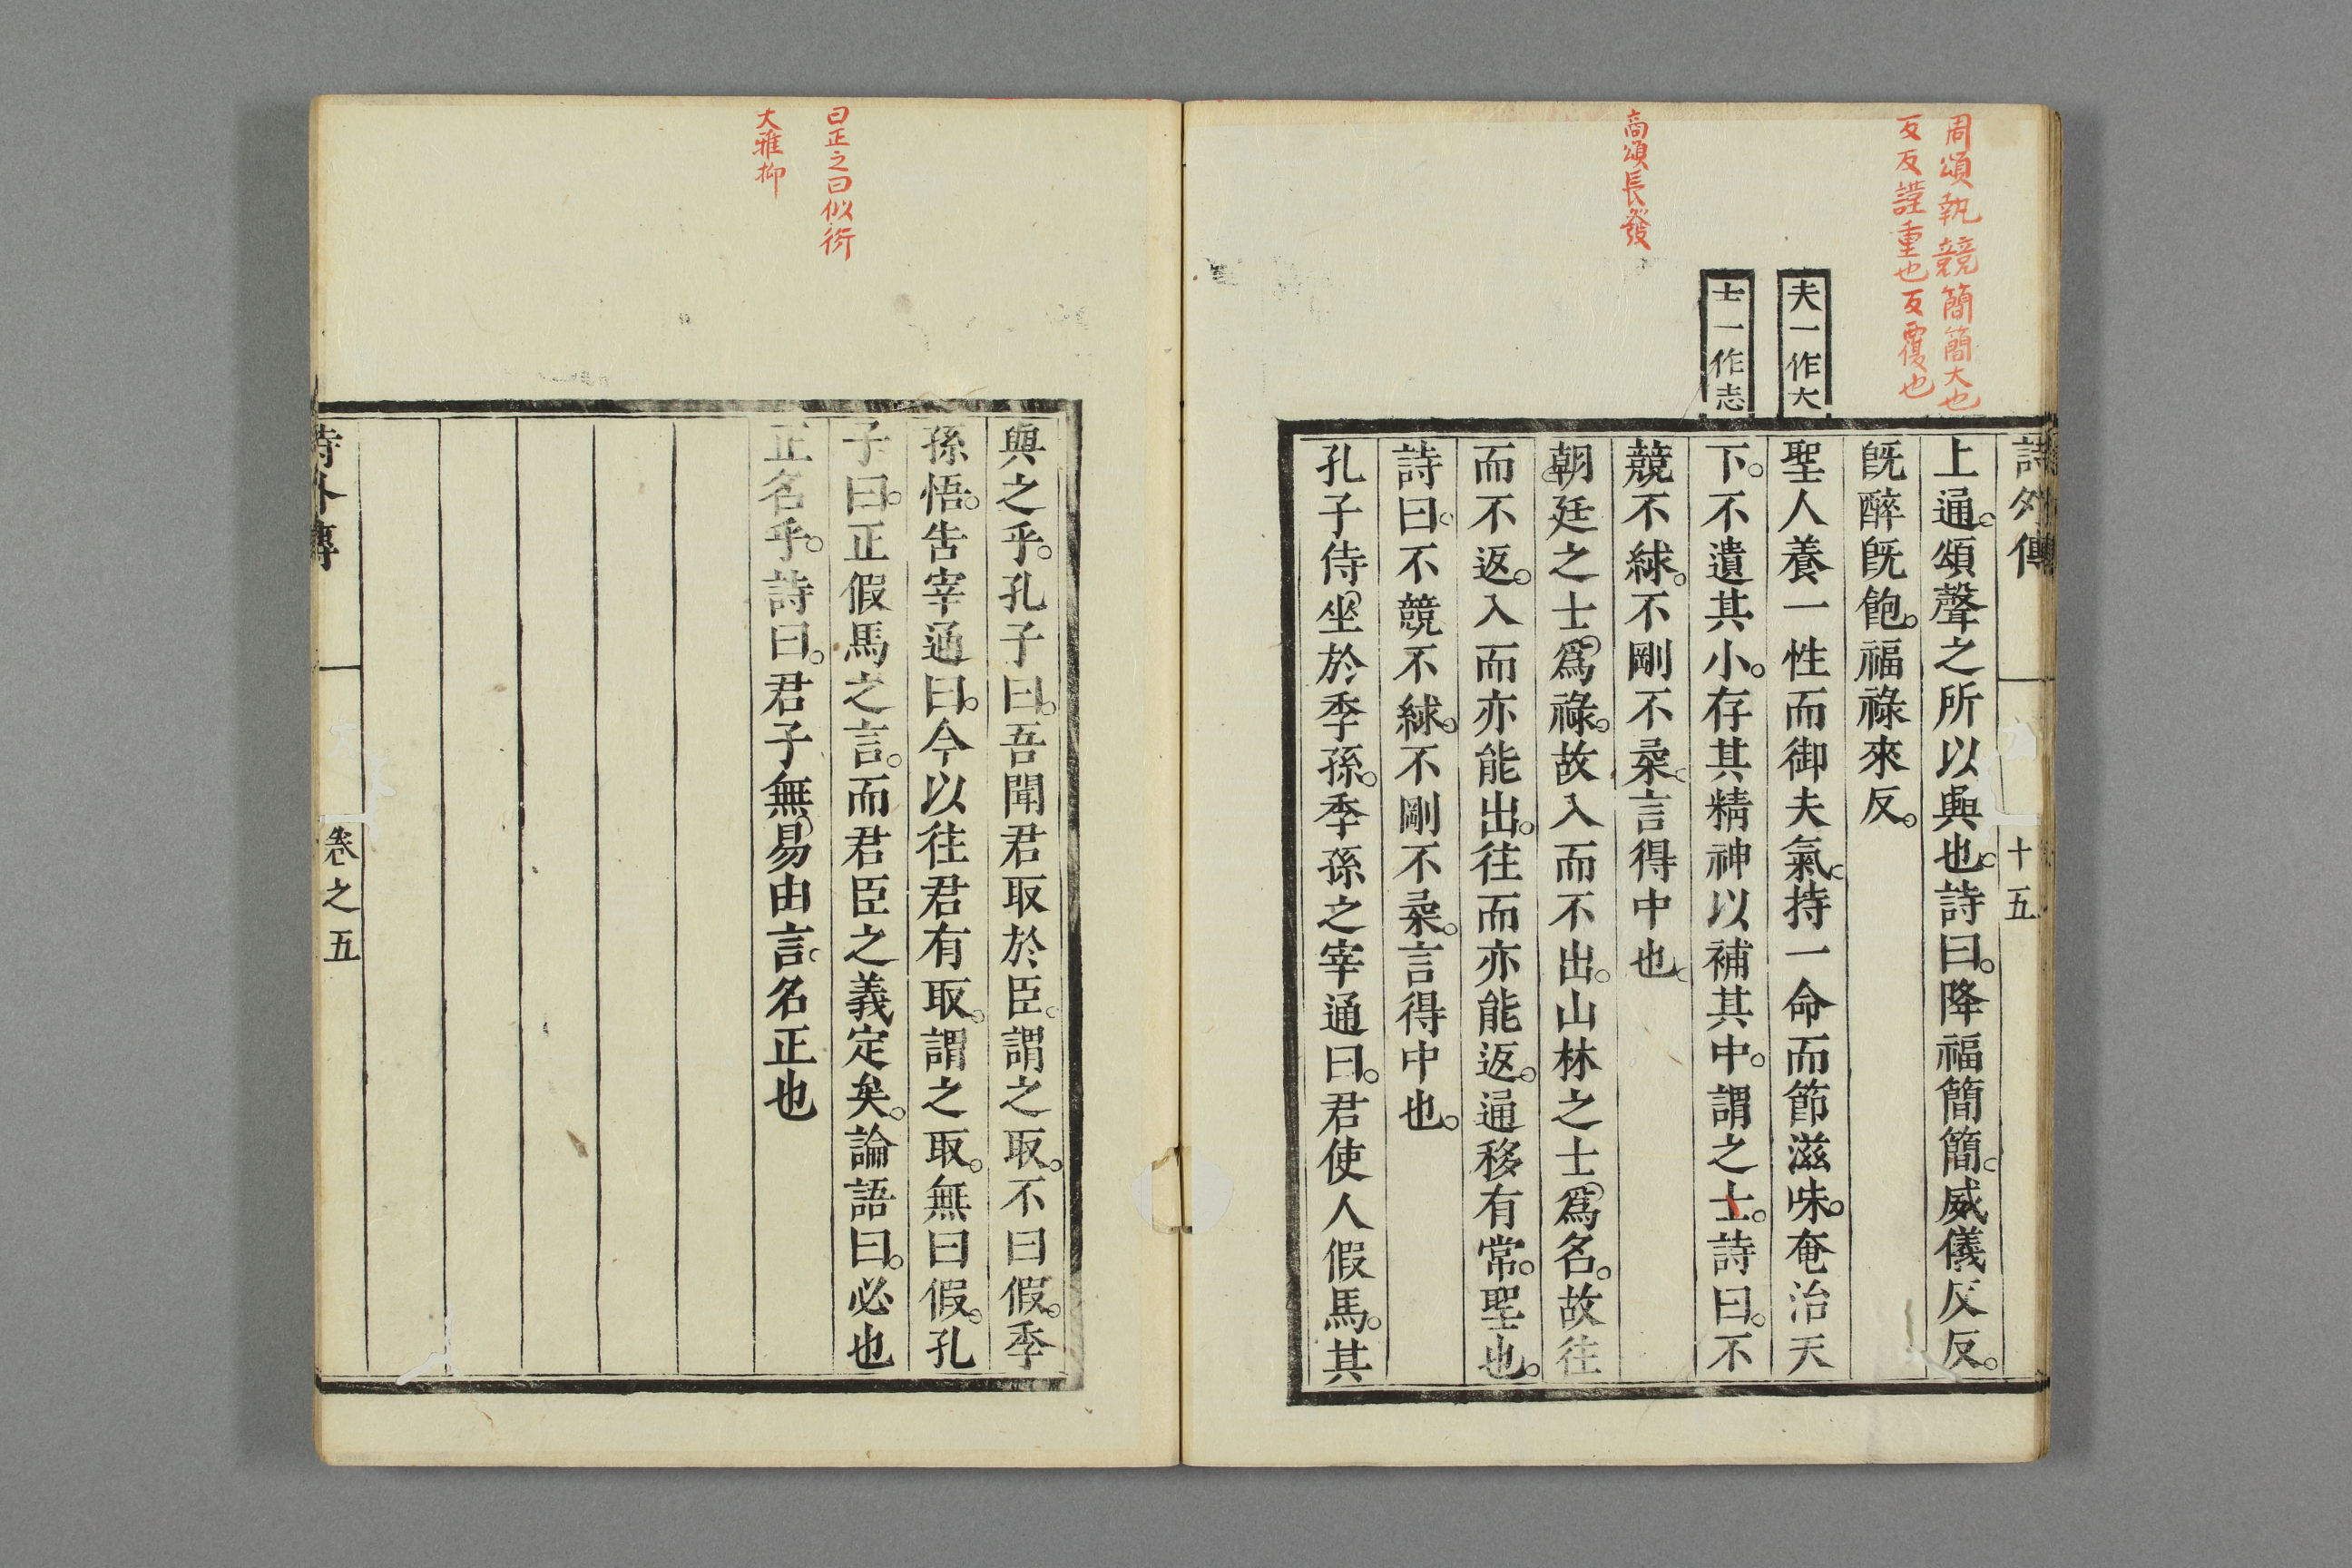 周頌執競簡簡大也
反反謹重也反覆也
商頌長發
夫一作大
士一作志
詩外傳
十五
上通。頌聲之所以興也。詩曰。降福簡簡。威儀反反。
旣醉旣飽。福祿來反。
聖人養一性而御夫氣。持一命而節滋味。奄治天
下。不遺其小。存其精神以補其中。謂之士。詩曰。不
競不絿。不剛不柔。言得中也。
朝廷之士爲祿。故入而不出。山林之士爲名。故往
而不返。入而亦能出。往而亦能返。通移有常。聖也。
詩曰。不競不絿。不剛不柔。言得中也。
孔子侍坐於季孫。季孫之宰通曰。君使人假馬。其
曰正之曰似衍
大雅抑
與之乎。孔子曰。吾聞君取於臣。謂之取。不曰假。季
孫悟。告宰通曰。今以往君有取。謂之取。無曰假。孔
子曰。正假馬之言。而君臣之義定矣。論語曰。必也
正名乎。詩曰。君子無易由言。名正也
詩外傳
卷之五